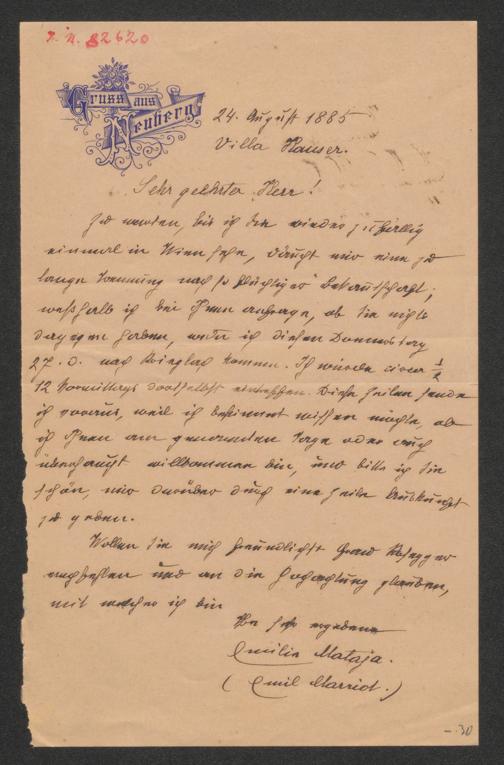 I. N. 82620
Gruss aus
Neuberg
24. August 1885
Villa Hauser.
Sehr geehrter Herr!
Zu warten, bis ich Sie wieder zufällig
einmal in Wien sehe, däucht mir eine zu
lange Trennung nach so flüchtiger Bekanntschaft;
weßhalb ich bei Ihnen anfrage, ob Sie nichts
dagegen haben, wenn ich diesen Donnerstag
27. d. nach Krieglach komme. Ich würde circa ½
12 Vormittags daselbst eintreffen. Diese Zeilen sende
ich voraus, weil ich bestimmt wissen möchte, ob
ich Ihnen am genannten Tage oder auch
überhaupt willkommen bin, und bitte ich Sie
schön, mir darüber durch eine Zeile Auskunft
zu geben.
Wollen Sie mich freundlichst Frau Rosegger
empfehlen und an die Hochachtung glauben,
mit welcher ich bin
Ihre sehr ergebene
Emilie Mataja.
(Emil Marriot.)
-.30